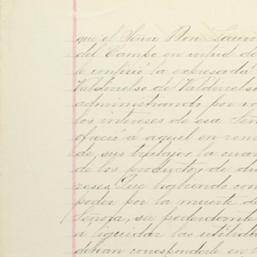 que el Señor Don Lauro
del Campo en virtud de
le confirió la expresada
Valdivielso de Valdivielso
administrando por
los intereses de esa Señ
ofreció á aquel en rem
de, sus trabajos la cuar
de los productos de di
reses. Que habiendo con
poder por la muerte de
Señora, su poderdante
á liquidar las utilida
debian corresponderle en